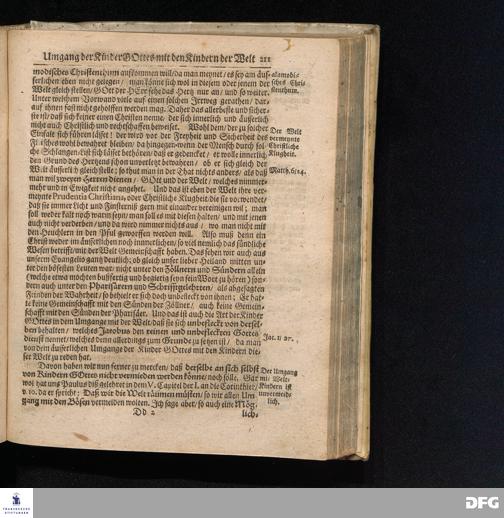 Umgang der Kinder GOttes mit den Kindern der Welt 211
modisches Christenthum auffkommen will/da man meynet/ es sey am äus-
serlichen eben nicht gelegen/ man könne sich wol in diesem oder jenem der
Welt gleich stellen/ GOtt der HErr sehe das Hertz nur an/ und so weiter.
Unter welchem Vorwand viele auf einen solchen Irrweg gerathen/ dar-
auf ihnen fast nicht geholffen werden mag. Daher das allerbeste und sicher-
ste ist/ daß sich keiner einen Christen nenne/ der sich innerlich und äusserlich
nicht auch Christlich und rechtschaffen beweiset. Wohl dem/ der zu solcher
Einfalt sich führen lässet: der wird vor der Freyheit und Sicherheit des
Fleisches wohl bewahret bleiben/ da hingegen wenn der Mensch durch sol-
che Schlangen-List sich lässet bethören/ daß er gedencket/ er wolle innerlich
den Grund des Hertzens schon unverletzt bewahren/ ob er sich gleich der
Welt äusserlich gleich stelle; so thut man in der That nichts anders/ als daß
man wil zweyen Herren dienen/ GOtt und der Welt/ welches nimmer-
mehr und in Ewigkeit nicht angehet. Und das ist eben der Welt ihre ver-
meynte Prudentia Christiana, oder Christliche Klugheit die sie vorwendet/
daß sie immer Licht und Finsterniß gern mit einander vereinigen wil; man
soll weder kalt noch warm seyn/ man soll es mit diesen halten/ und mit jenen
auch nicht verderben/ und da wird nimmer nichts aus/ wo man nicht mit
den Heuchlern in den Pfuhl geworffen werden will. Also muß denn ein
Christ weder im äusserlichen noch innerlichen/ so viel nemlich das sündliche
Wesen betrifft/ mit der Welt Gemeinschafft haben. Das sehen wir auch aus
unserm Evangelio gantz deutlich; ob gleich unser lieber Heiland mitten un-
ter den bösesten Leuten war/ nicht unter den Zöllnern und Sündern allein
(welche etwa mochten bußfertig und begierig seyn sein Wort zu hören) son-
dern auch unter den Pharisäern und Schrifftgelehrten/ als abgesagten
Feinden der Wahrheit/ so behielt er sich doch unbefleckt von ihnen; Er hat-
te keine Gemeinschafft mit den Sünden der Zöllner/ auch keine Gemein-
schafft mit den Sünden der Pharisäer. Und das ist auch die Art der Kinder
GOttes in dem Umgange mit der Welt/ daß sie sich unbefleckt von dersel-
ben behalten/ welches Jacobus den reinen und unbefleckten Gottes-
dienst nennet/ welches denn allerdings zum Grunde zu setzen ist/ da man
von dem äusserlichen Umgange der Kinder GOttes mit den Kindern die-
ser Welt zu reden hat.
Davon haben wir nun ferner zu mercken/ daß derselbe an sich selbst
von Kindern GOttes nicht vermieden werden könne/ noch solle. Gar
wol hat uns Paulus diß gelehret in dem V. Capitel der I. an die Corinthier/
v. 10. da er spricht: Daß wir die Welt räumen müsten/ so wir allen Um-
gang mit den Bösen vermeiden wolten. Ich sage aber/ so auch eine Mög-
Dd 2 lich-
alamodi-
sches Chris-
tenthum.
Der Welt
vermeynte
Christliche
Klugheit.
Matth. 6/24.
Jac. 1/ 27.
Der Umgang
mit Welt-
Kindern ist
unvermeid-
lich.
FRANCKESCHE STIFTUNGEN
DFG